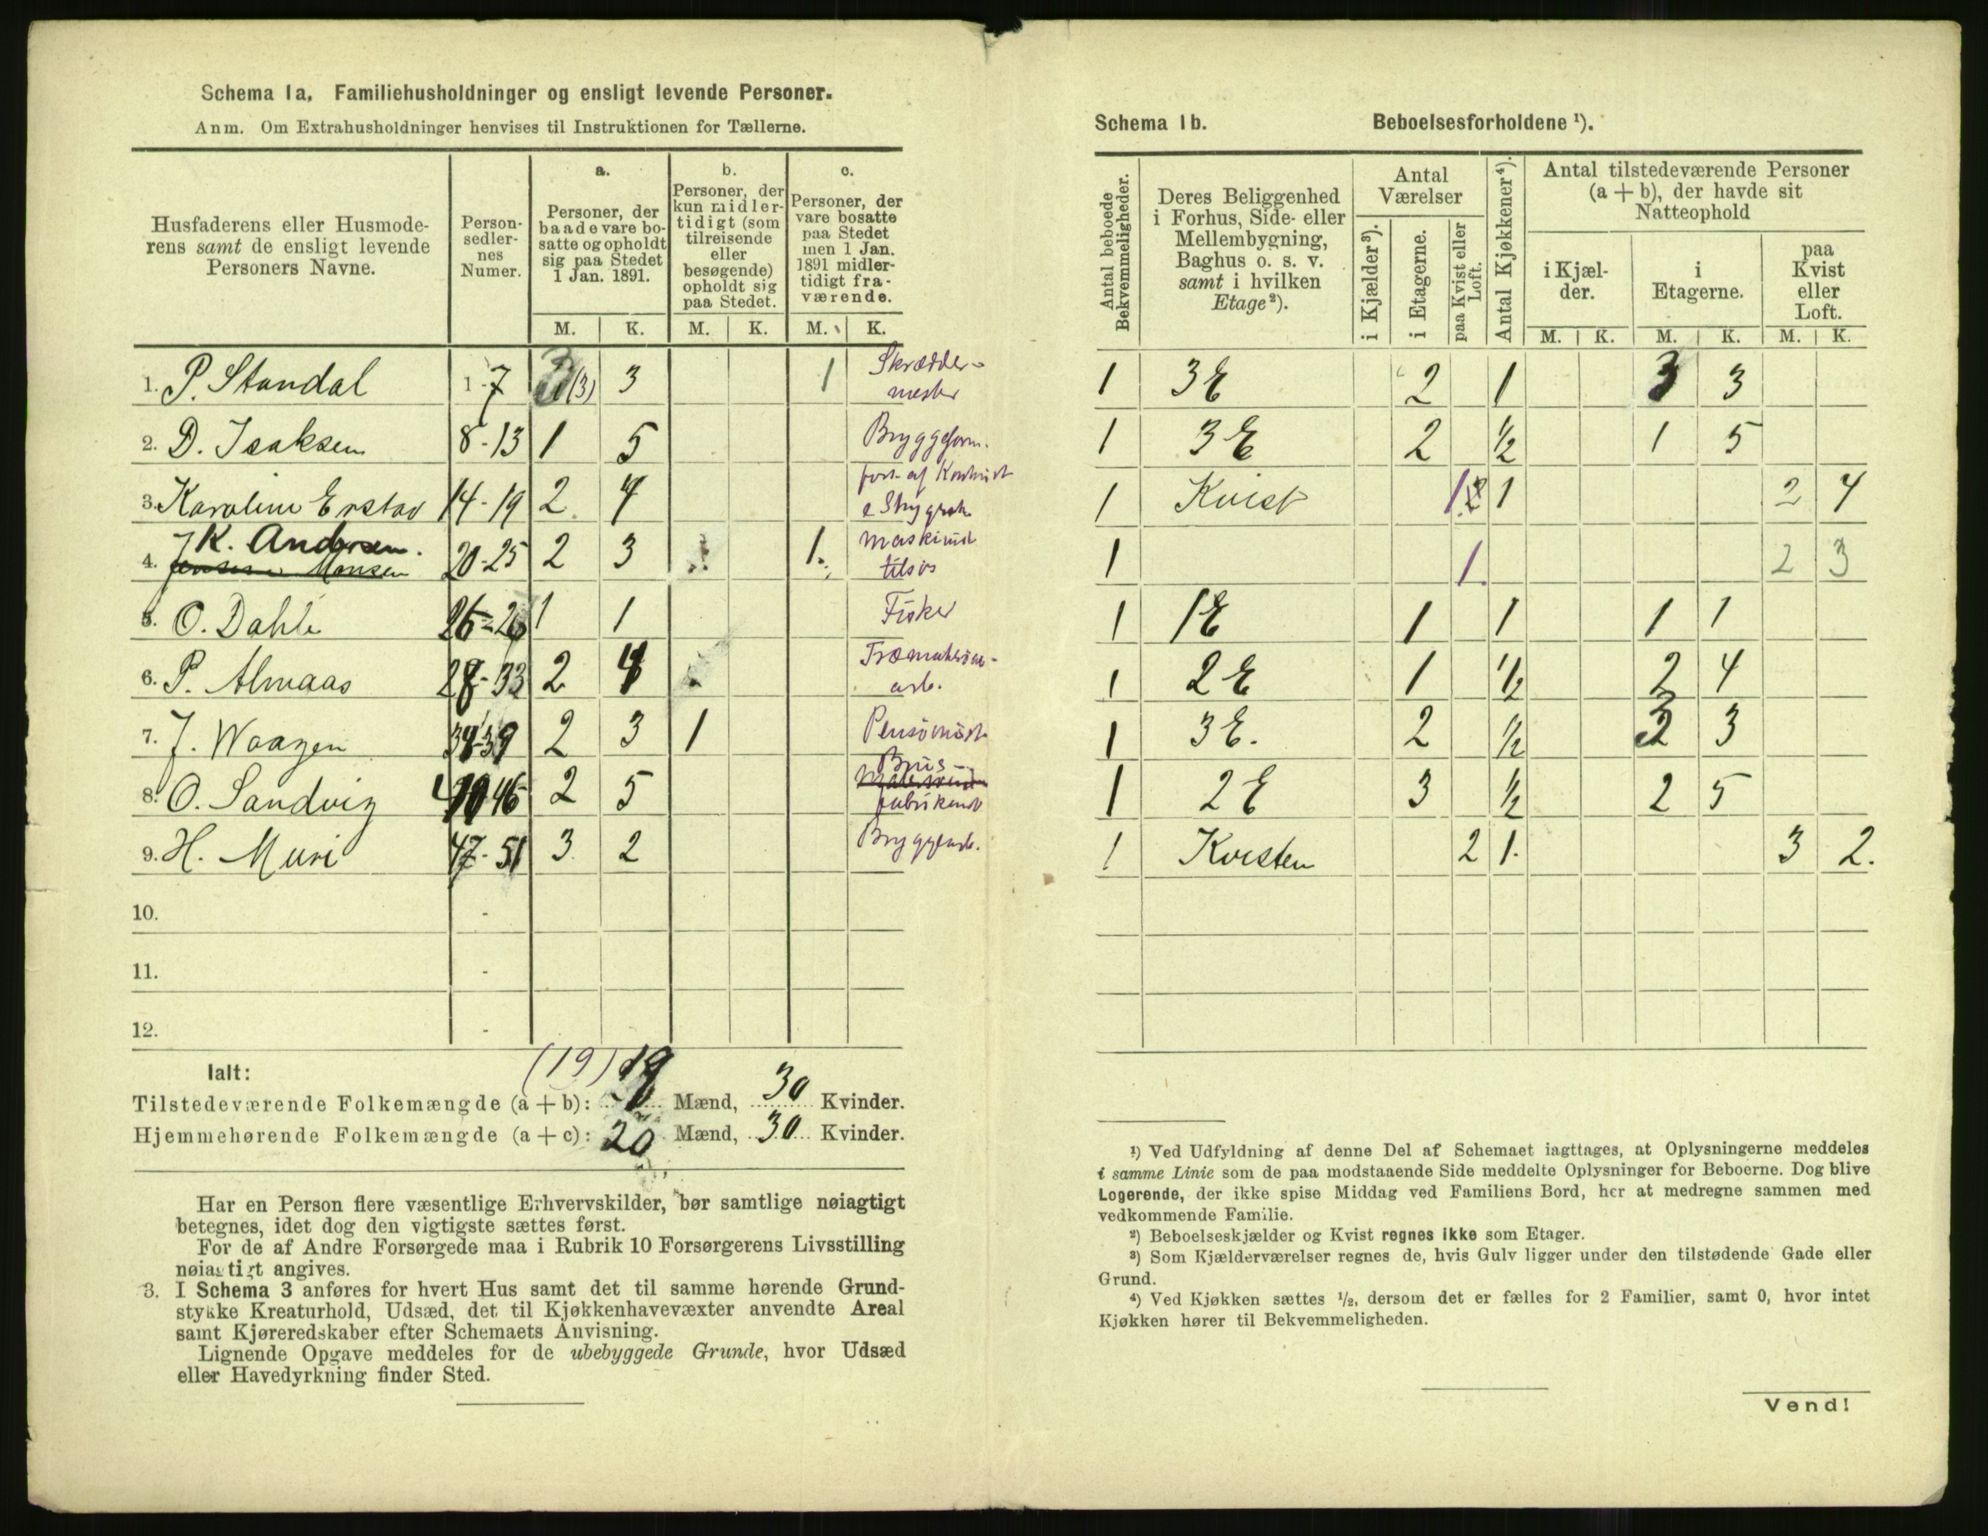 Schema 1a. Familiehusholdninger og ensligt levende Personer.
Anm. Om Extrahusholdninger henvises til Instruktionen for Tællerne.
Husfaderens eller Husmoderens samt de ensligt levende Personers Navne.
Personsedlernes Numer.
a.
Personer, der baade vare bosatte og opholdt sig paa Stedet 1 Jan. 1891.
b.
Personer, der kun midlertidigt (som tilreisende eller besøgende) opholdt sig paa Stedet.
c.
Personer, der vare bosatte paa Stedet men 1 Jan. 1891 midlertidigt fraværende.
M. K. M. K. M. K.
1. P. Standal 1-7 (3) 3 1 Skræddermester
2. D. Isaksen 8-13 1 5
3. Karoline Erstad 14-19 2 4
4. K. Andersen. 20-25 2 3 1. Maskinist tilsøs
5. O. Dahle 1 1 Fisker
6. P. Almaas 2 4
7. J. Waagen 2 3 1 Pensionist
8. O. Sandvig 2 5 Brusfabrikant
9. H. Muri 47-51 3 2 Bryggearb.
10. -
11. -
12. -
Ialt:
(19) 19
Tilstedeværende Folkemængde (a + b): Mænd, 30 Kvinder.
Hjemmehørende Folkemængde (a + c): 20 Mænd, 30 Kvinder.
Har en Person flere væsentlige Erhvervskilder, bør samtlige nøiagtigt
betegnes, idet dog den vigtigste sættes først.
For de af Andre Forsørgede maa i Rubrik 10 Forsørgerens Livsstilling
nøiagtigt angives.
3. I Schema 3 anføres for hvert Hus samt det til samme hørende Grund-
stykke Kreaturhold, Udsæd, det til Kjøkkenhavevæxter anvendte Areal
samt Kjøreredskaber efter Schemaets Anvisning.
Lignende Opgave meddeles for de ubebyggede Grunde, hvor Udsæd
eller Havedyrkning finder Sted.
Schema 1b. Beboelsesforholdene ¹).
Antal beboede Bekvemmeligheder.
Deres Beliggenhed i Forhus, Side- eller Mellembygning, Baghus o. s. v. samt i hvilken Etage ²).
Antal Værelser
i Kjælder ³).
i Etagerne.
paa Kvist eller Loft.
Antal Kjøkkener ⁴).
Antal tilstedeværende Personer (a + b), der havde sit Natteophold
i Kjælder.
i Etagerne.
paa Kvist eller Loft.
M. K. M. K. M. K.
1 3 E 2 1 3 3
1 3 E 2 ½ 1 5
1 Kvist 1 1 2 4
1 1. 2 3
1 1 E 1 1 1 1
1 2 E 1 ½ 2 4
1 3 E. 2 ½ 3 3
1 2 E 3 ½ 2 5
1 Kvisten 2 1. 3 2.
¹) Ved Udfyldning af denne Del af Schemaet iagttages, at Oplysningerne meddeles
i samme Linie som de paa modstaaende Side meddelte Oplysninger for Beboerne. Dog blive
Logerende, der ikke spise Middag ved Familiens Bord, her at medregne sammen med
vedkommende Familie.
²) Beboelseskjælder og Kvist regnes ikke som Etager.
³) Som Kjælderværelser regnes de, hvis Gulv ligger under den tilstødende Gade eller
Grund.
⁴) Ved Kjøkken sættes ½, dersom det er fælles for 2 Familier, samt 0, hvor intet
Kjøkken hører til Bekvemmeligheden.
Vend!